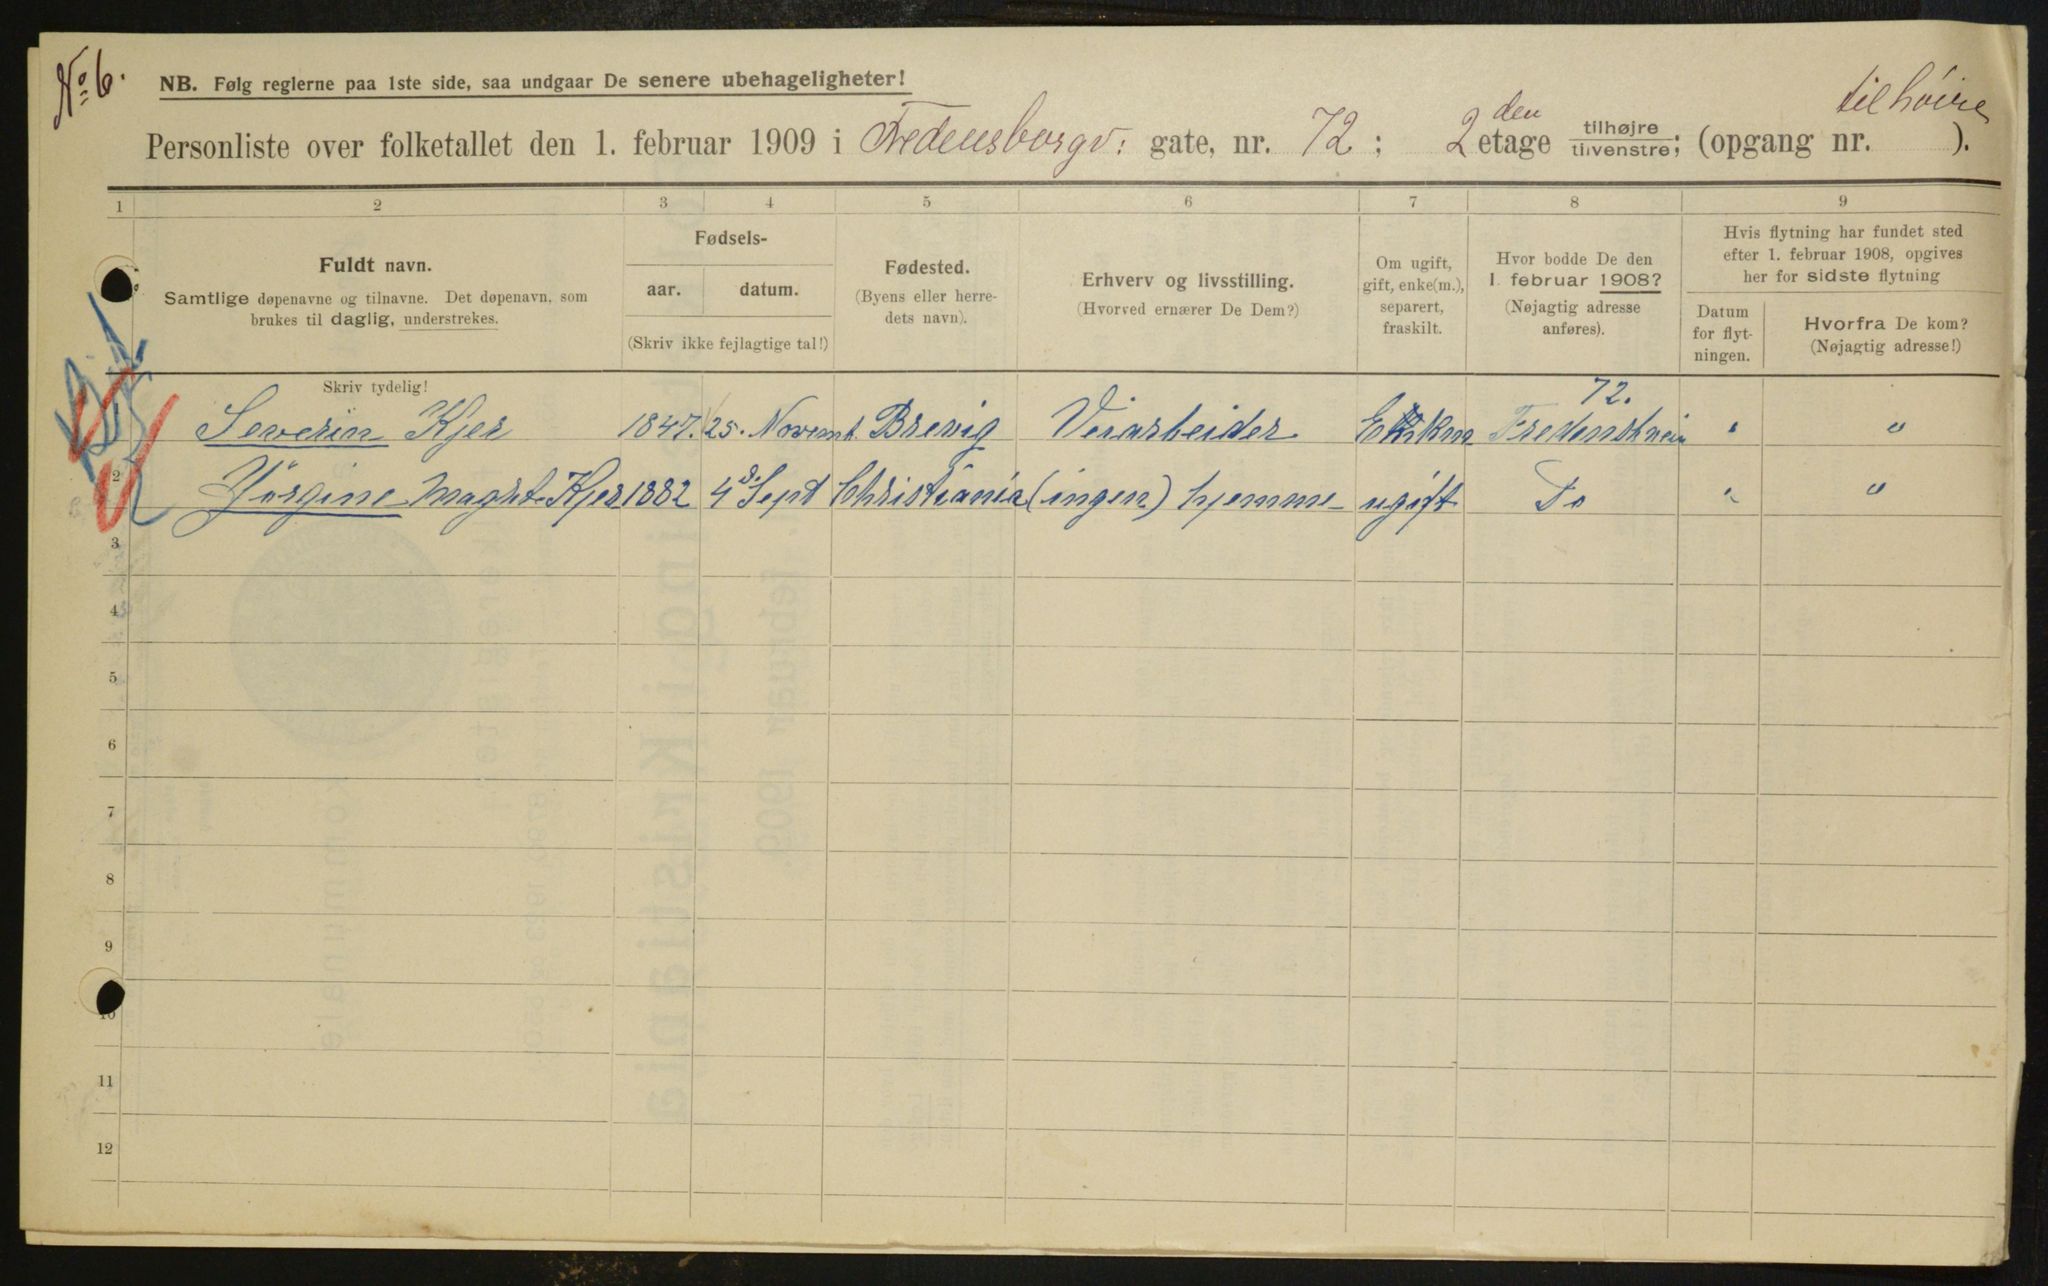 No 6.
NB. Følg reglerne paa 1ste side, saa undgaar De senere ubehageligheter!
Personliste over folketallet den 1. februar 1909 i Fredensborgv: gate, nr. 72; 2den etage tilhøjre tilvenstre; (opgang nr. til høire ).
1 2 3 4 5 6 7 8 9
Fuldt navn.
Samtlige døpenavne og tilnavne. Det døpenavn, som
brukes til daglig, understrekes.
Skriv tydelig!
Fødsels-
aar. datum.
(Skriv ikke fejlagtige tal!)
Fødested.
(Byens eller herre-
dets navn).
Erhverv og livsstilling.
(Hvorved ernærer De Dem?)
Om ugift,
gift, enke(m.),
separert,
fraskilt.
Hvor bodde De den
1. februar 1908?
(Nøjagtig adresse
anføres).
Hvis flytning har fundet sted
efter 1. februar 1908, opgives
her for sidste flytning
Datum
for flyt-
ningen.
Hvorfra De kom?
(Nøjagtig adresse!)
72.
Severin Kjer 1847. 25. Novemb. Brevig Veiarbeider Enkm Fredensbvein " "
2 Jörgine Magrt. Kjer 1882 4de Sept Christiania (ingen) hjemme ugift Do " "
3
4
5
6
7
8
9
10
11
12